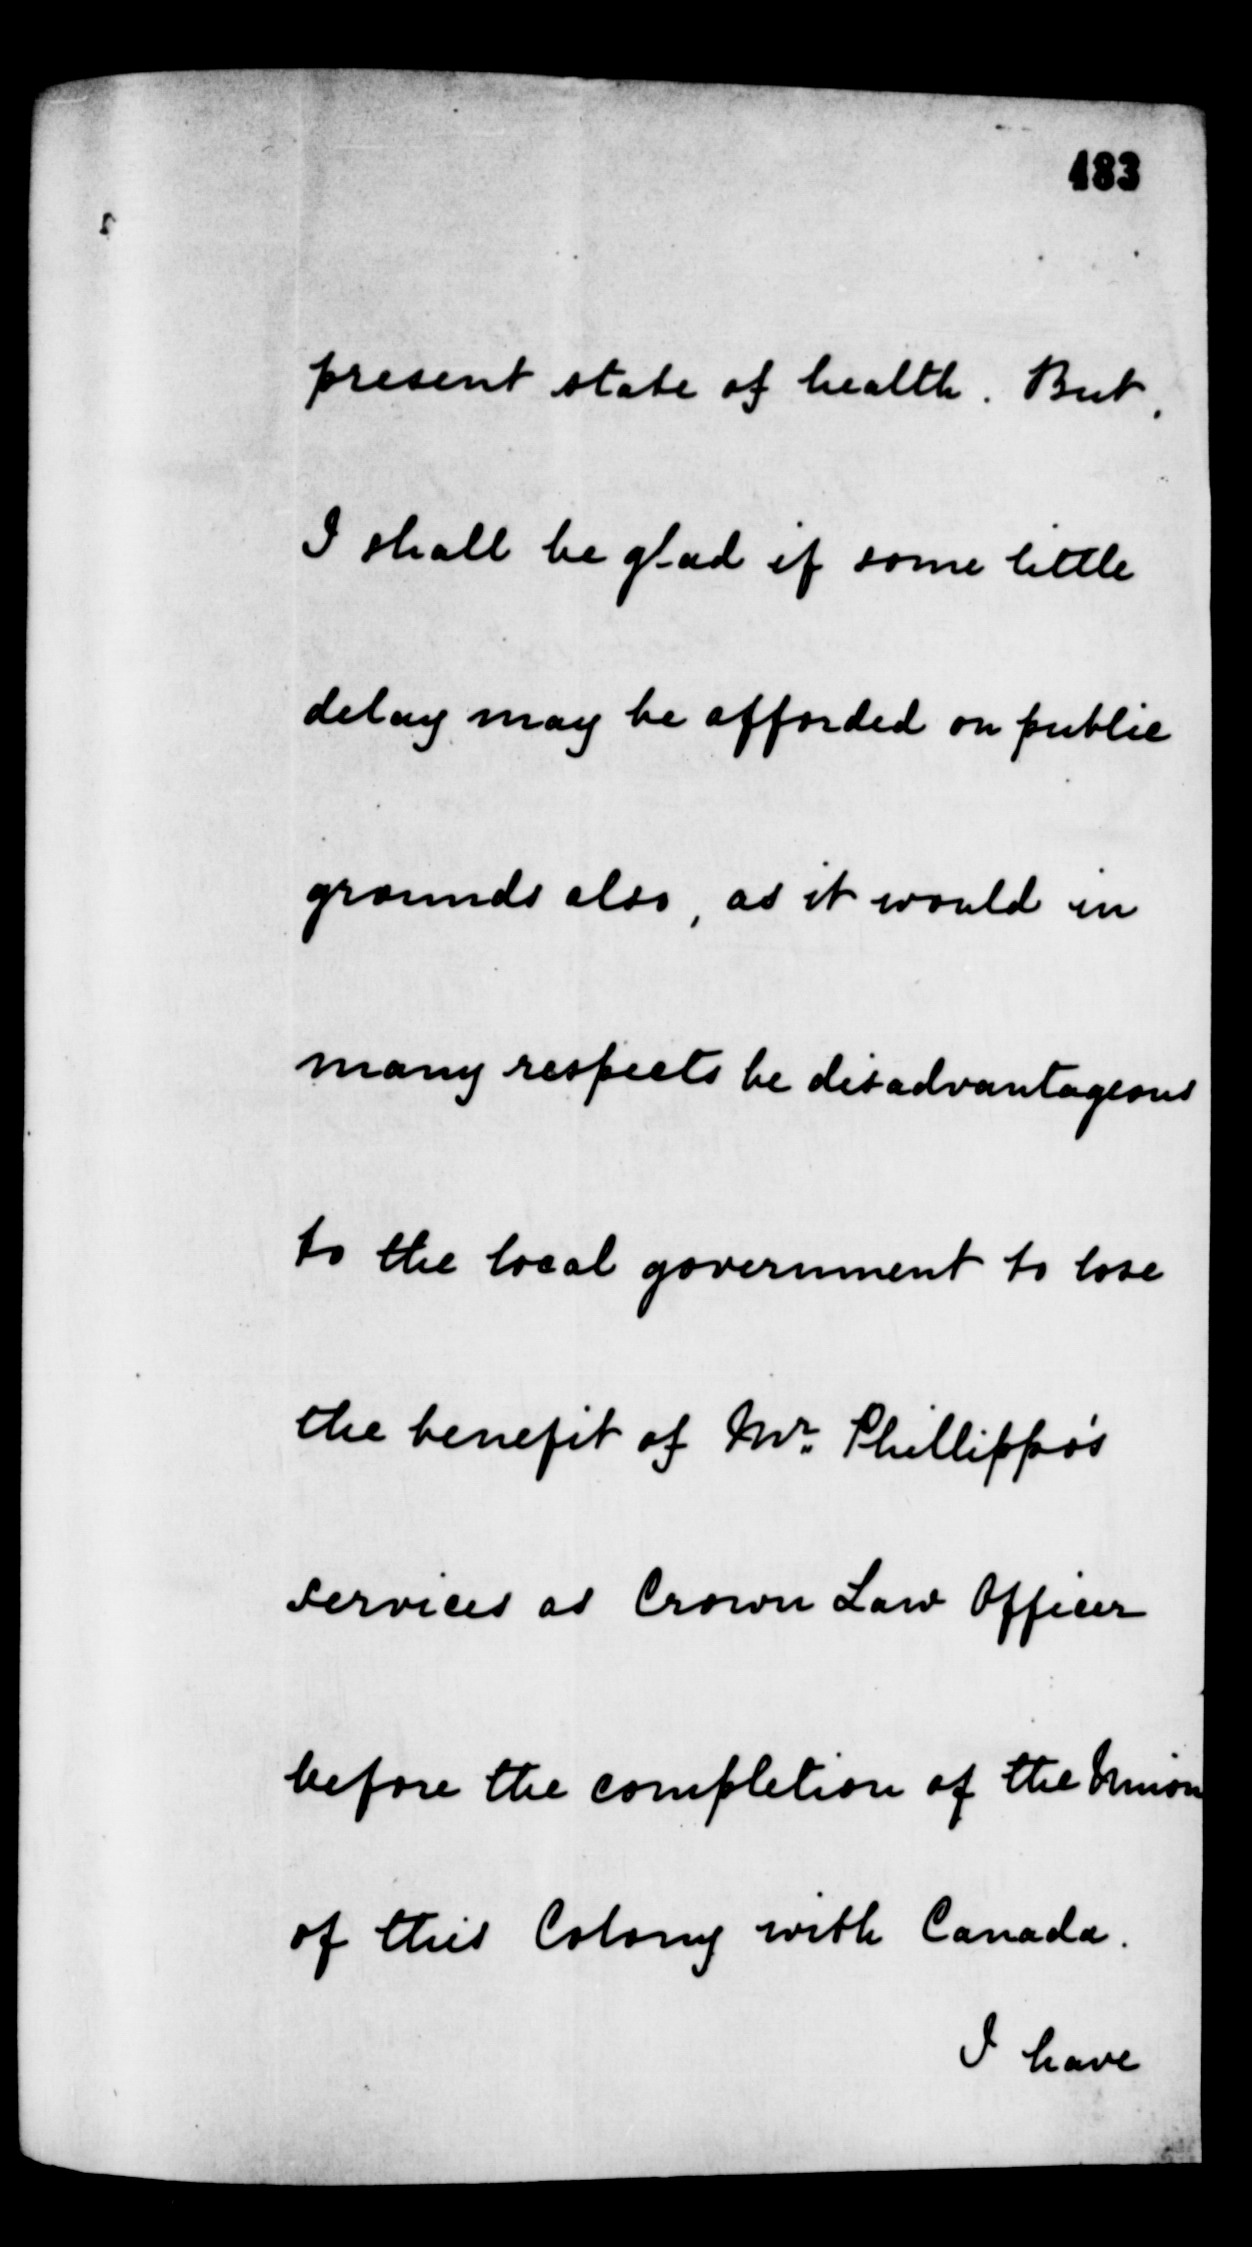 483
present state of health. But,
I shall be glad if some little
delay may be afforded on public
grounds also, as it would in
many respects be disadvantageous
to the local government to lose
the benefit of Mr. Phillippo's
services as Crown Law Officer
before the completion of the Union
of this Colony with Canada.
I have